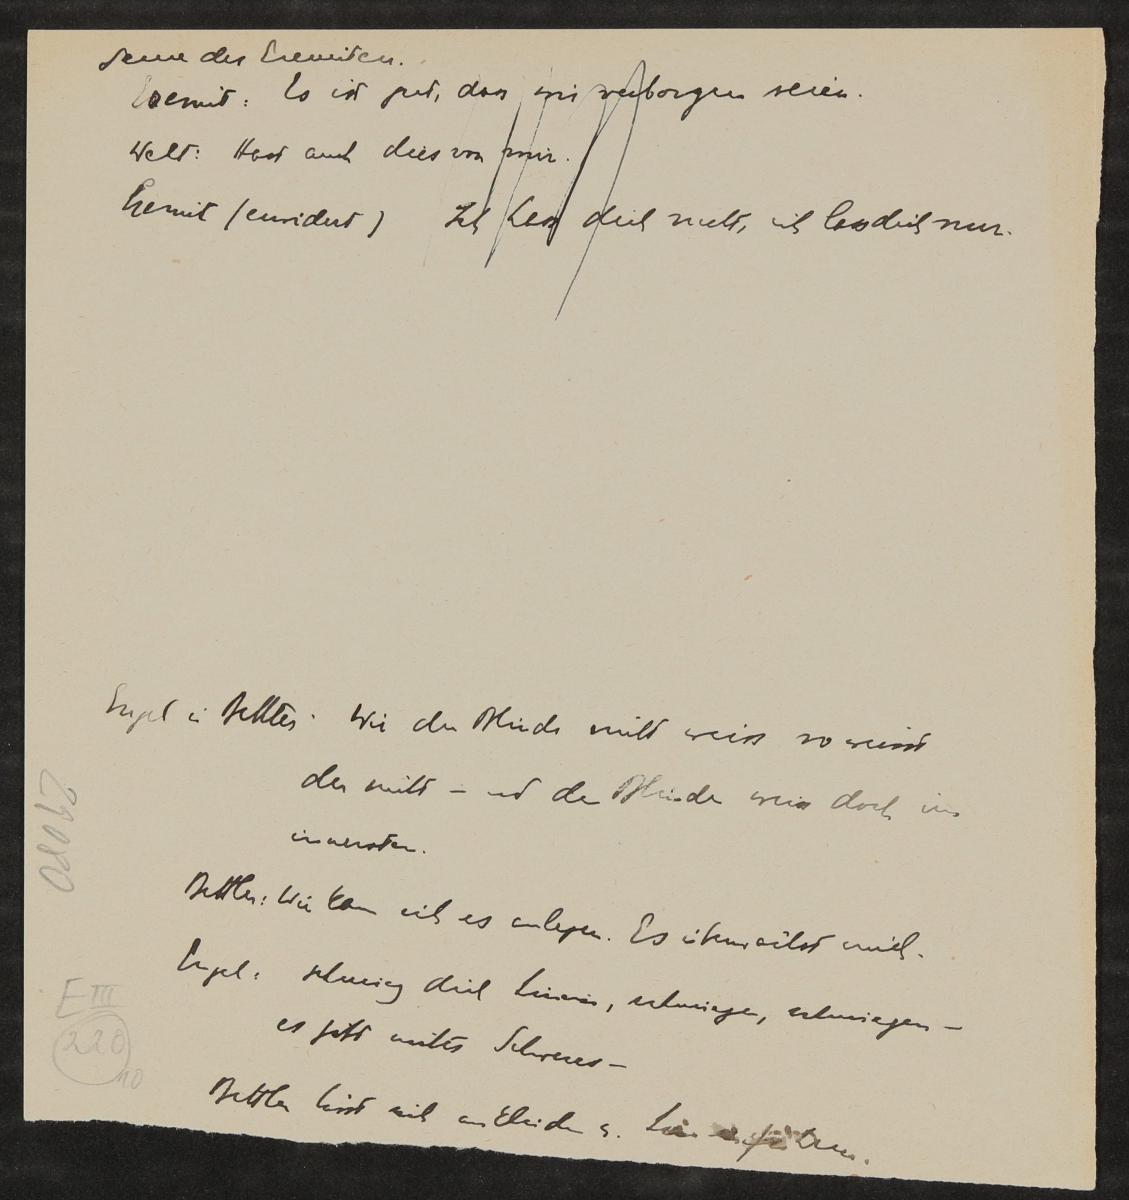 Scene des Eremiten.
Eremit: Es ist gut, dass wir verborgen seien.
Welt: Hast auch dies von mir.
Eremit (erwidert) Ich lass dich nicht, ich lass dich nur.
Engel u Bettler: Wie der Blinde nicht weiss so weisst
du nicht – und der Blinde weiss doch im
innersten.
Bettler: Wie kann ich es anlegen. Es überwältigt mich.
Engel: schweig dich hinein, schweigen, schweigen –
es gibt nichts Schweres –
Bettler lässt sich ankleiden u.
24080
E III
220
10